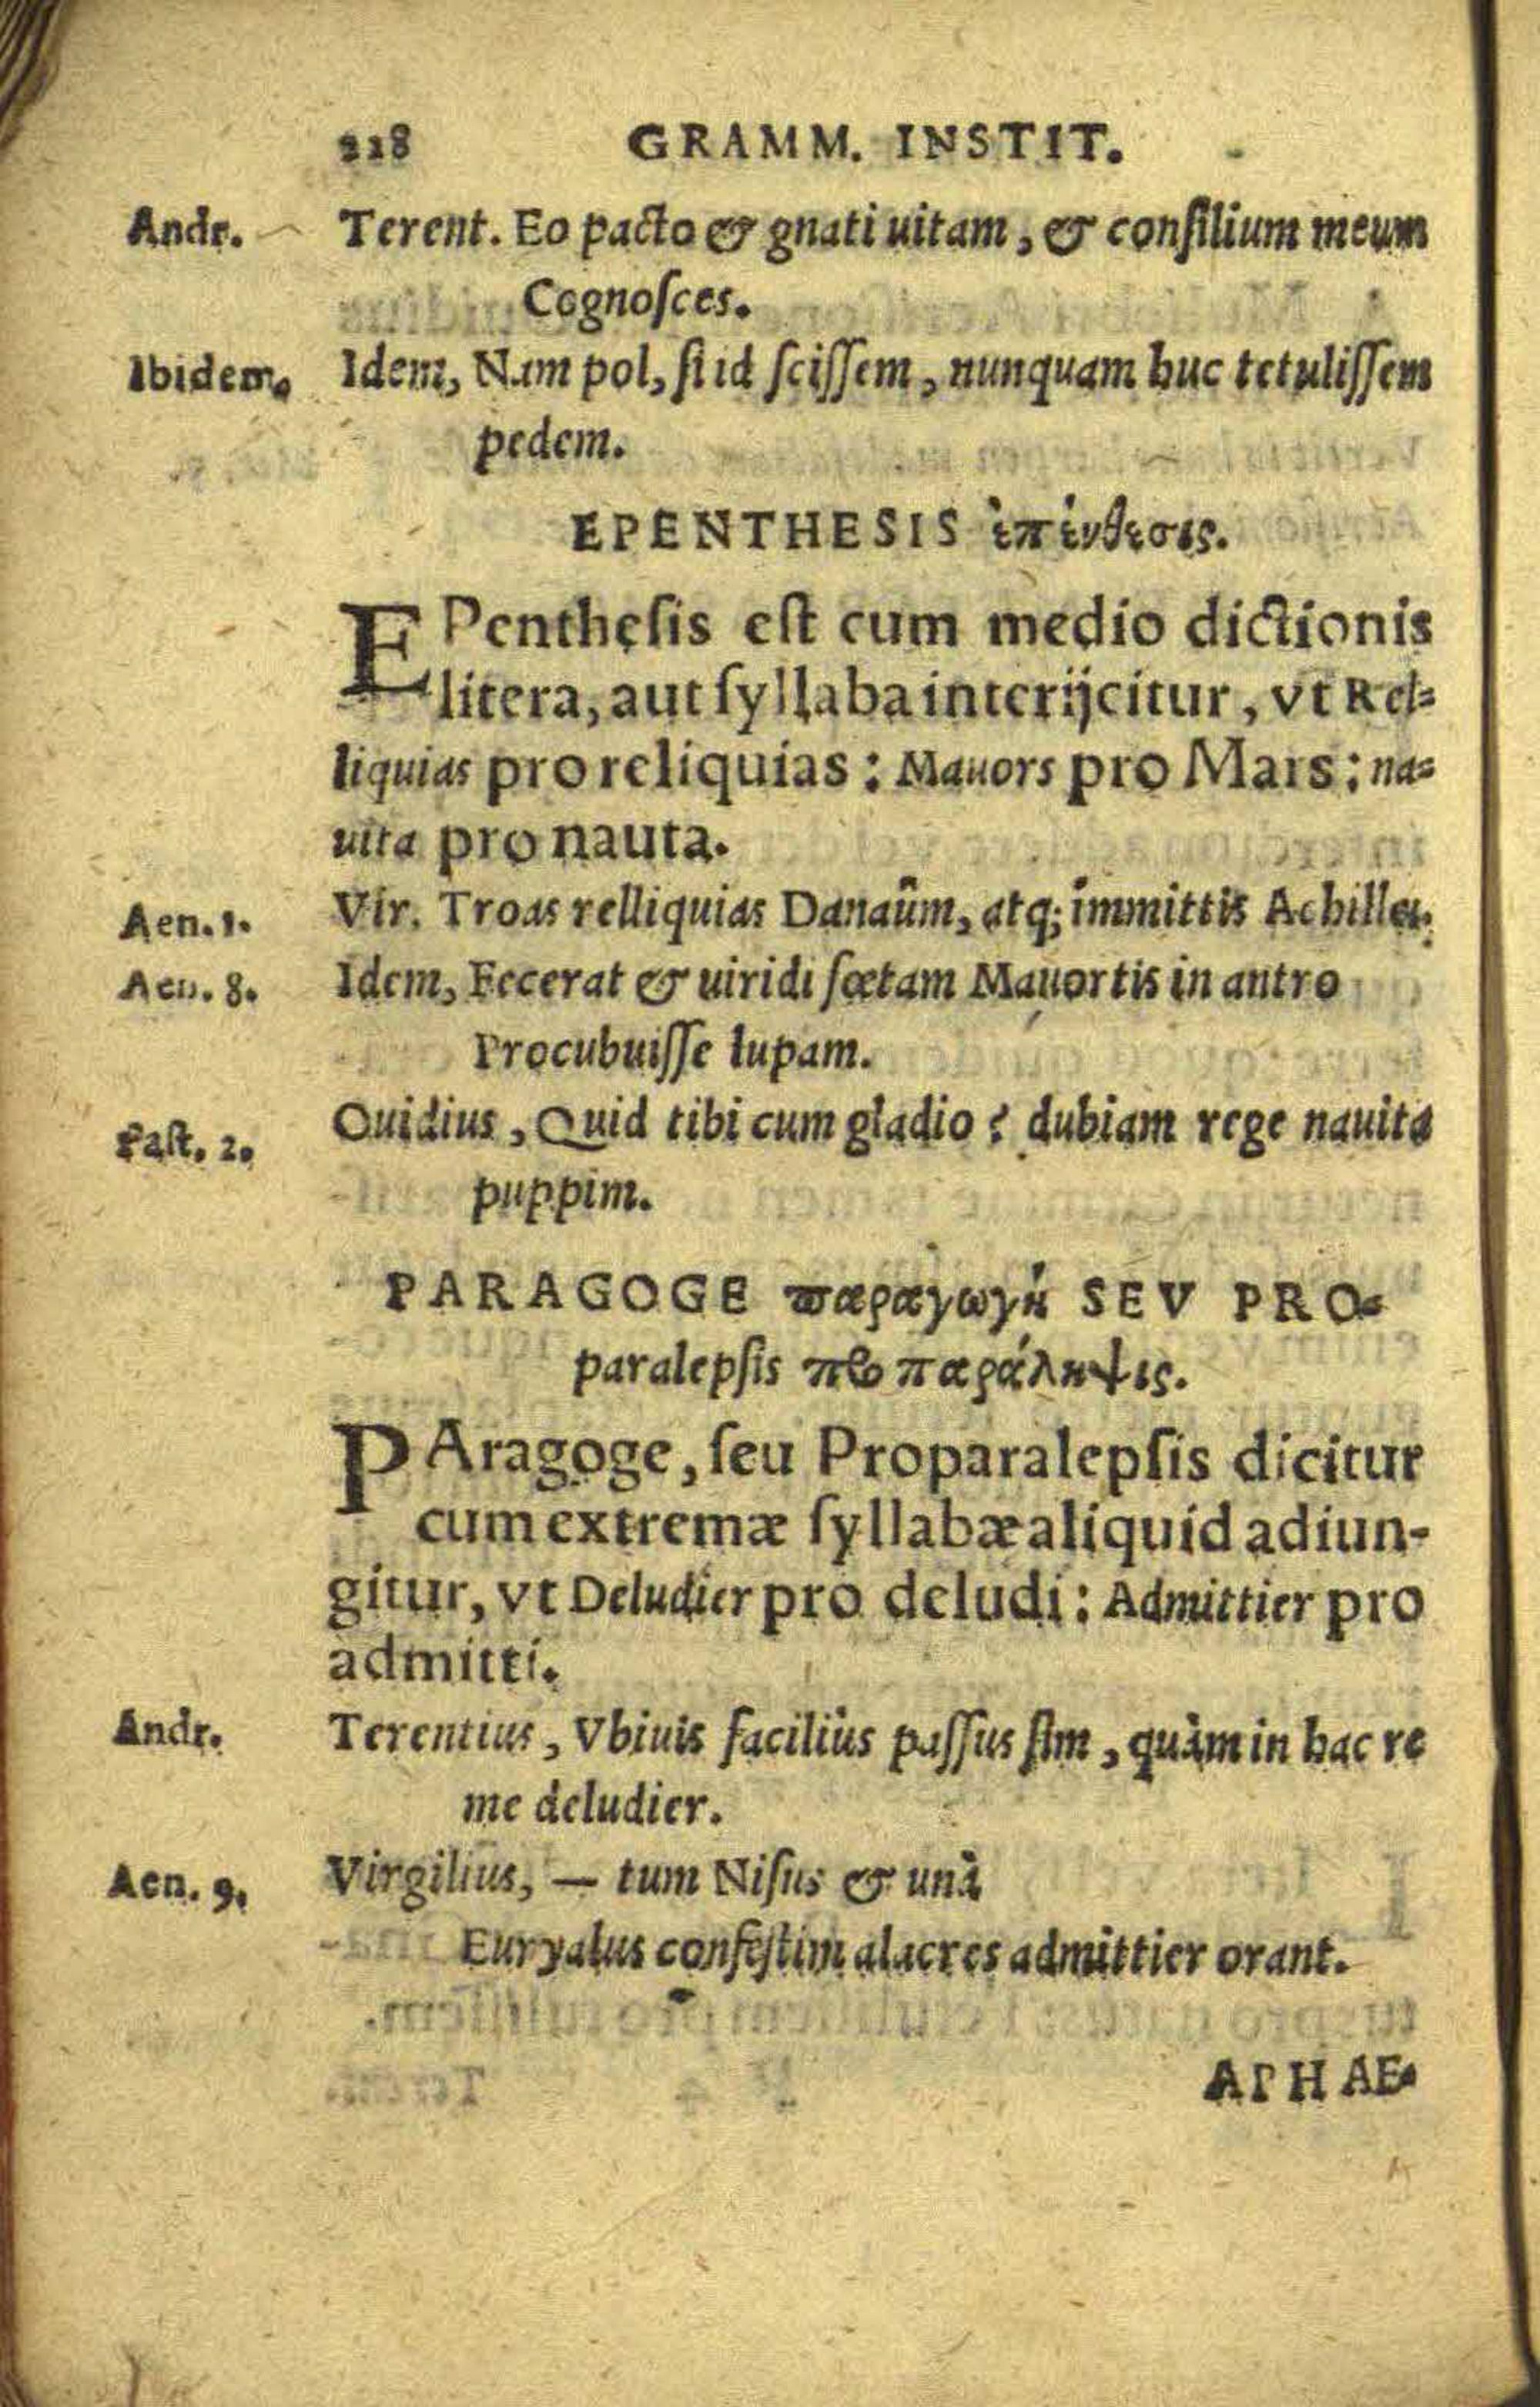 218 GRAMM. INSTIT.
Andr. Terent. Eo pacto & gnati uitam, & consilium meum
Cognosces.
Ibidem. Idem, Nam pol, si id scissem, nunquam huc tetulissem
pedem.
EPENTHESIS ἐπένθεσις.
EPenthesis est cum medio dictionis
litera, aut syllaba interijcitur, vt Rel=
liquias pro reliquias: Mauors pro Mars; na=
uita pro nauta.
Aen. 1. Vir. Troas relliquias Danaûm, atq; immittis Achillei.
Aen. 8. Idem, Fecerat & uiridi fœtam Mauortis in antro
Procubuisse lupam.
Fast. 2. Ouidius, Quid tibi cum gladio? dubiam rege nauita
puppim.
PARAGOGE παραγωγὴ SEV PRO=
paralepsis προπαράληψις.
PAragoge, seu Proparalepsis dicitur
cum extremæ syllabæ aliquid adiun-
gitur, vt Deludier pro deludi: Admittier pro
admitti.
Andr. Terentius, Vbiuis faciliùs passus sim, quàm in hac re
me deludier.
Aen. 9. Virgilius, — tum Nisus & unà
Euryalus confestim alacres admittier orant.
APHAE-